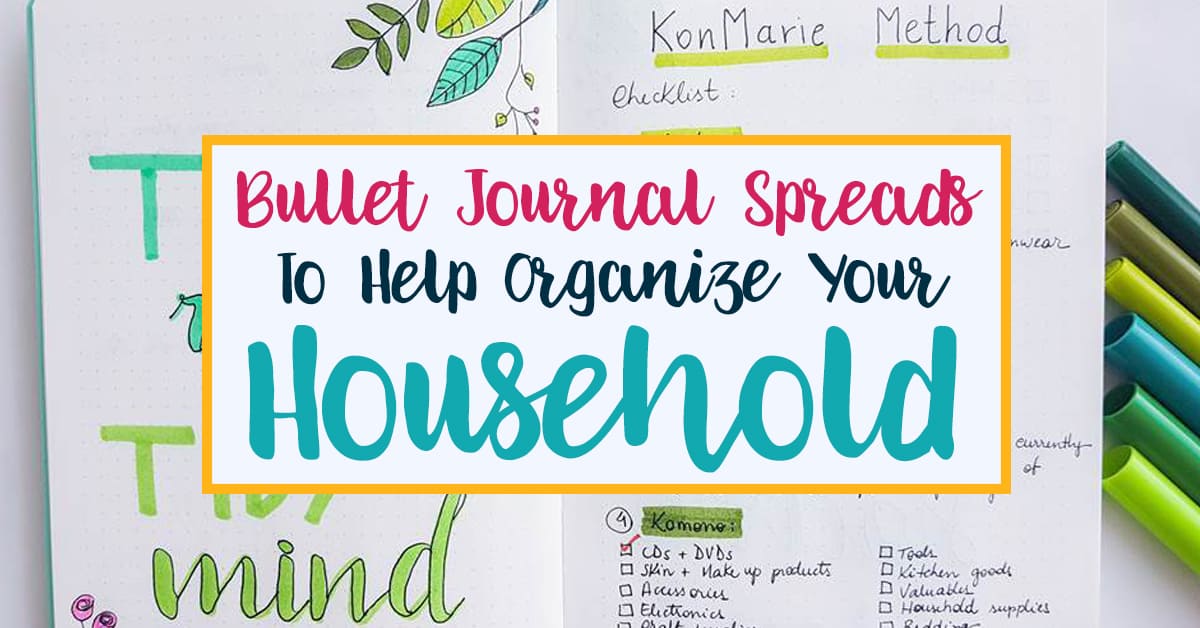 KonMarie Method
Checklist:
Bullet Journal Spreads
To Help Organize Your
Household
currently
of
mind
④ Komono:
CDs + DVDs
Skin + Make up products
Accessories
Electronics
Tools
Kitchen goods
Valuables
Household supplies
Bedding